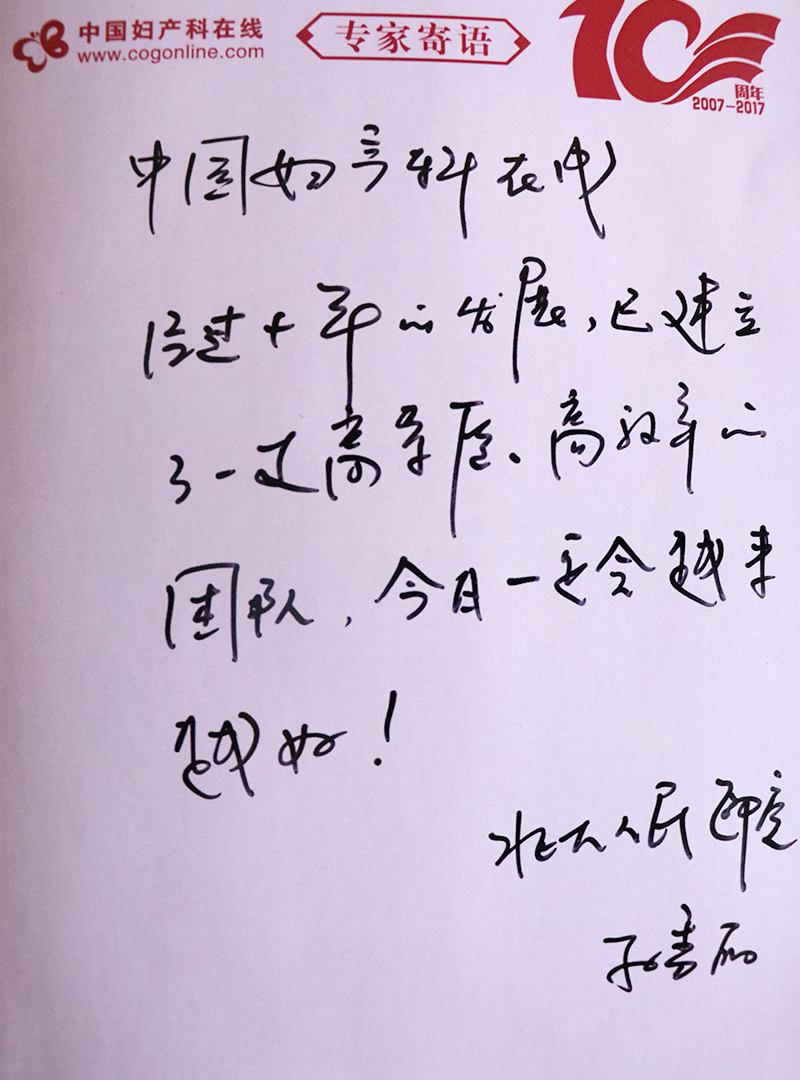 中国妇产科在线
www.cogonline.com
专家寄语
10
周年
2007-2017
中国妇产科在
经过十年的发展,已建立
了一支高素质、高效率的
团队,今日一定会越来
越好!
北大人民医院
孙秀丽